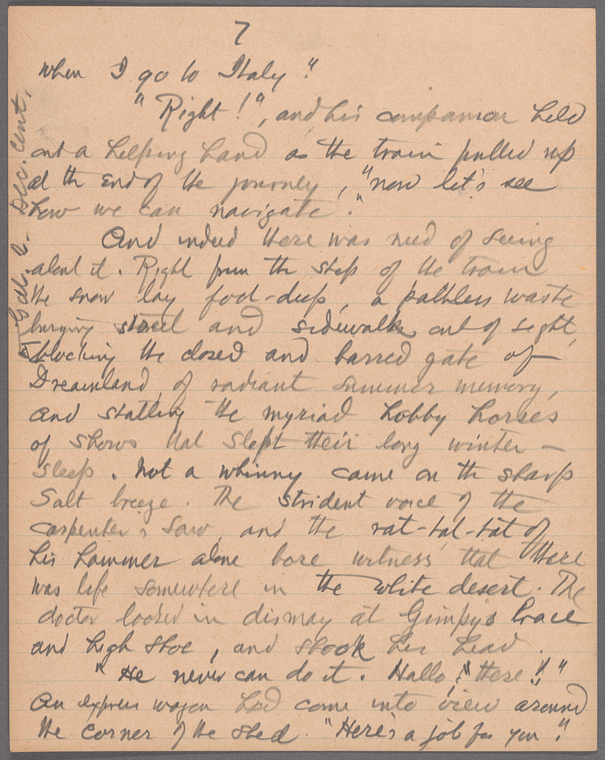 7
when I go to Italy."
"Right!", and his companion held
out a helping hand as the train pulled up
at the end of the journey, "now let's see
how we can navigate."
And indeed there was need of seeing
about it. Right from the step of the train
the snow lay foot-deep, a pathless waste
burying street and sidewalk out of sight,
blocking the closed and barred gate of
Dreamland, of radiant summer memory,
and stalling the myriad hobby horses
of shows that slept their long winter-
sleep. Not a whinny came on the sharp
salt breeze. The strident voice of the
carpenter's saw, and the rat-tat-tat of
his hammer alone bore witness that there
was life somewhere in the white desert. The
doctor looked in dismay at Gimpy's brace
and high shoe, and shook his head.
"He never can do it. Hallo, there!"
An express wagon had come into view around
the corner of the shed. "Here's a job for you."
Dec. Cent.